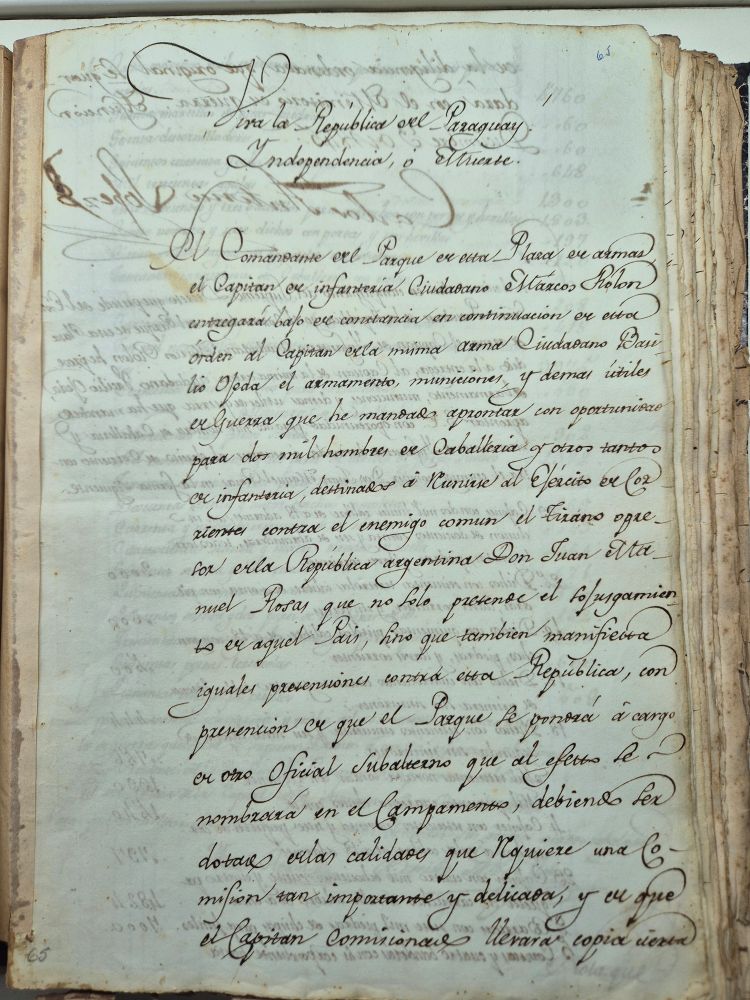 65
¡Viva la República del Paraguay!
Yndependencia, o Muerte.
El Comandante del Parque de esta Plaza de armas,
el Capitan de infanteria Ciudadano Marcos Rólon
entregará bajo de constancia en continuacion de esta
órden al Capitan de la misma arma Ciudadano Basi-
lio Ojeda el armamento, municiones, y demas útiles
de Guerra que he mandado aprontar con oportunidad
para dos mil hombres de Caballeria y otros tantos
de infanteria, destinados á Runirse al Ejército de Cor-
rientes contra el enemigo comun el tirano opre-
sor de la República argentina Don Juan Ma-
nuel Rosas que no solo pretende el sojusgamien-
to de aquel Pais, sino que tambien manifiesta
iguales pretensiones contra esta República, con
prevencion de que el Parque se pondrá á cargo
de otro Oficial Subalterno que al efecto se
nombrará en el Campamento, debiendo ser
dotado de las calidades que Rquiere una Co-
mision tan importante y delicada, y de que
el Capitan Comisionado llevará copia cierta
65